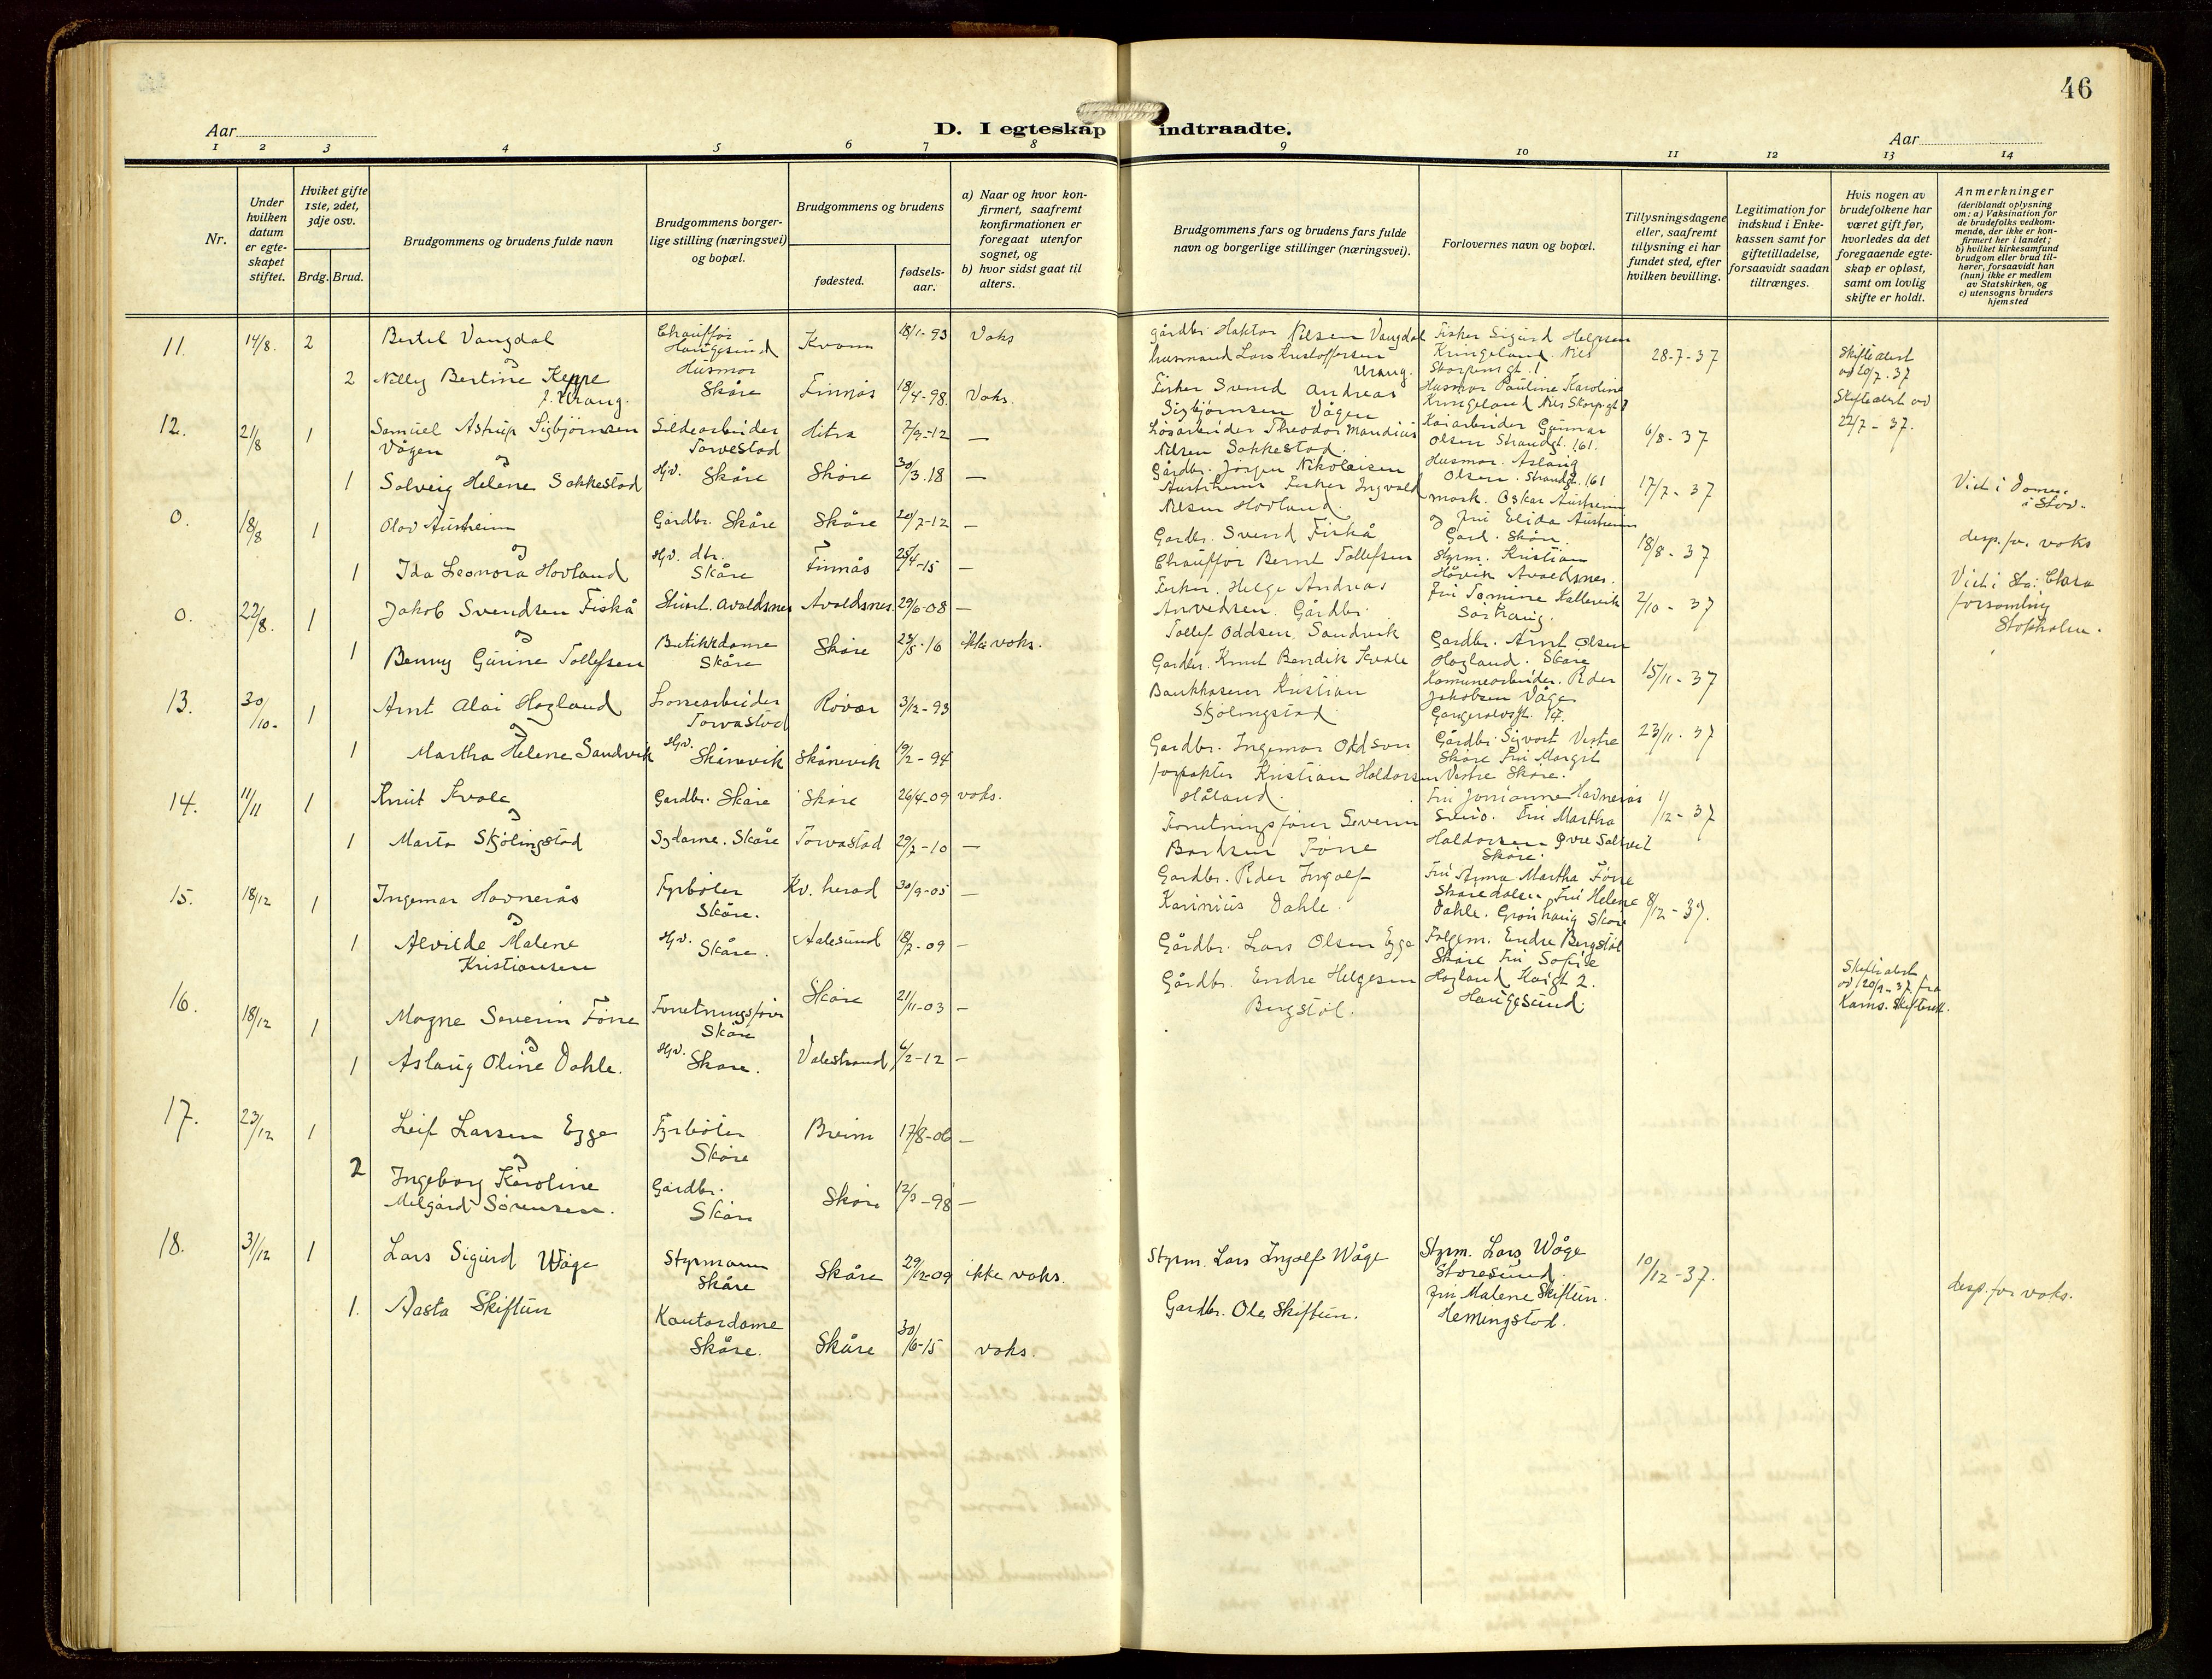 46
Aar
D. I egteskap indtraadte.
Aar
1 2 3 4 5 6 7 8 9 10 11 12 13 14
Nr.
Under hvilken datum er egte-skapet stiftet.
Hviket gifte 1ste, 2det, 3dje osv.
Brdg. Brud.
Brudgommens og brudens fulde navn
Brudgommens borger-lige stilling (næringsvei) og bopæl.
Brudgommens og brudens
fødested.
fødsels-aar.
a) Naar og hvor kon-firmert, saafremt konfirmationen er foregaat utenfor sognet, og
b) hvor sidst gaat til alters.
Brudgommens fars og brudens fars fulde navn og borgerlige stillinger (næringsvei).
Forlovernes navn og bopæl.
Tillysningsdagene eller, saafremt tillysning ei har fundet sted, efter hvilken bevilling.
Legitimation for indskud i Enke-kassen samt for giftetilladelse, forsaavidt saadan tiltrænges.
Hvis nogen av brudefolkene har været gift før, hvorledes da det foregaaende egte-skap er opløst, samt om lovlig skifte er holdt.
Anmerkninger
(deriblandt oplysning om: a) Vaksination for de brudefolks vedkom-mende, der ikke er kon-firmert her i landet; b) hvilket kirkesamfund brudgom eller brud til-hører, forsaavidt han (nun) ikke er medlem av Statskirken, og c) utensogns bruders hjemsted
11. 14/8. 2 Bertel Vangdal Chauffør Haugesund Kvam 18/1-93 Voks
og
2 Nelly Bertine Keppe f. Vrang. Husmor Skåre Finnås 18/4-98 Voks.
12. 21/8 1 Samuel Astrup Sigbjörnsen Vågen Sildearbeider Torvestad Hitra 7/9-12 —
og
1 Solveig Helene Sakkestad Hjv. Skåre Skåre 30/3.18 —
0. 18/8 1 Olav Austreim Gardbr. Skåre Skåre 20/7-12 —
og
1 Ida Leonora Hovland Hjv. dtr. Skåre Finnås 25/4-15 —
0. 22/8. 1 Jakob Svendsen Fiskå Avaldsnes Avaldsnes. 29/6-08 —
og
1 Benny Gurine Tollefsen Butikkdame Skåre Skåre 23/5-16 ikke voks.
13. 30/10. 1 Arnt Alai Hagland Torvastad Røvær 3/12-93
og
1 Martha Helene Sandvik Hjv. Skånevik Skånevik 19/2-94
14. 11/11 1 Knut Kvale Gardbr. Skåre Skåre 26/4-09 voks.
og
1 Marta Skjölingstad Sydame. Skåre Torvastad 29/7-10 —
15. 18/12 1 Ingemar Havnerås Fyrböter Skåre. Kv. herad 30/9-05 —
og
1 Alvilde Malene Kristiansen Hjv. Skåre. Aalesund 18/7-09 —
16. 18/12 1 Magne Severin Förre Forretningsförer Skåre Skåre 21/11-03 —
og
1 Aslaug Oline Dahle. Hjv. Skåre. Valestrand 6/2-12 —
17. 23/12 1 Leif Larsen Egge Fyrböter Skåre Breim 17/8-06 —
og
2 Ingeborg Karoline Melgård Sörensen. Gardbr. Skåre Skåre 12/3-98 —
18. 31/12 1 Lars Sigurd Wåge Styrmann Skåre Skåre 29/12-09 ikke voks.
1. Aasta Skiftun Kontordame Skåre. Skåre 30/6-15 voks.
gårdbr. Haktor Nilsen Vangdal
husmand Lars Kristoffersen Vrang.
Fisker Svend Andreas
Sigbjörnsen Vågen
Løsarbeider Theodor Mandius
Nilsen Sakkestad.
Gårdbr. Jörgen Nikolaisen
Austreim Fisker Ingvald
Nilsen Hovland.
Gardbr. Svend Fiskå
Chauffør Bernt Tollefsen
Fisker. Helge Andreas
Gårdbr.
Tollef Oddsen Sandvik
Gardbr. Knut Bendik Kvale
Bankkaserer Kristian
Skjölingstad
Gardbr. Ingemar Oddson
forpakter Kristian Haldorsen
Håland.
Forretningsförer Severin
Bårdsen Förre
Gardbr. Peder Ingolf
Karinius Dahle.
Gårdbr. Lars Olsen Egge
Gårdbr. Endre Helgesen
Bergstöl.
Styrm. Lars Ingolf Wåge
Gardbr. Ole Skiftun.
Fisker Sigurd Helgesen
Kringeland. Nils
Skorpensgt. 1
Husmor Pauline Karoline
Kringeland Nils Skorpsgt 1
Kaiarbeider Gunnar
Olsen Strandgt. 161.
Husmor. Aslaug
Olsen. Strandgt. 161
mask. Oskar Austreim
og fru Elida Austreim
Gard. Skåre.
Styrm. Kristian
Håvik Avaldsnes.
Fru Tomine Kallevik
Sörhaug.
Gardbr. Arnt Olsen
Hagland. Skåre
Komunearbeider. Peder
Jakobsen Våge
Gangerolvsgt. 14.
Gårdbr. Sigvart Vestre
Skåre Fru Margit
Vestre Skåre.
Fru Jorianne Havnerås
Sveio. Fru Martha
Haldorsen Øvre Solveit
Skåre.
Fru Anna Martha Förre
Skåredalen Fru Helene
Dahle. Grönhaug Skåre
Folgem. Endre Bergstöl
Skåre Fru Sofie
Hagland Kaigt 2.
Haugesund.
Styrm. Lars Wåge
Storesund.
fru Malene Skiftun.
Hemingstad.
28-7-37
6/8-37
17/7-37
18/8-37
2/10-37
15/11-37
23/11-37
1/12-37
8/12-37.
10/12-37.
Skifteatest
av 20/7.37
Skifteatest av
22/7-37.
Skifteatest
av 20/9-37 fra
Karms. Skifterett.
Viet i Domen
i Stav.
desp. for voks
Viet i Sta: Clara
forsamling
Stokholm.
desp. for voks.